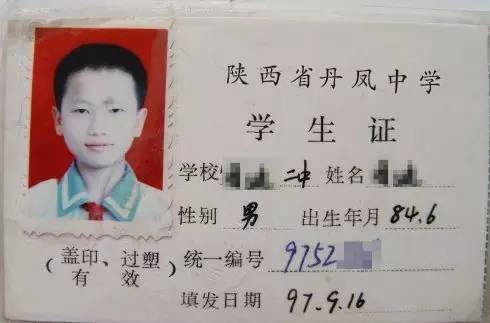 陕西省丹凤中学
学生证
学校 二中 姓名
性别 男 出生年月 84.6
(盖印、过塑有效) 统一编号 9752
填发日期 97.9.16